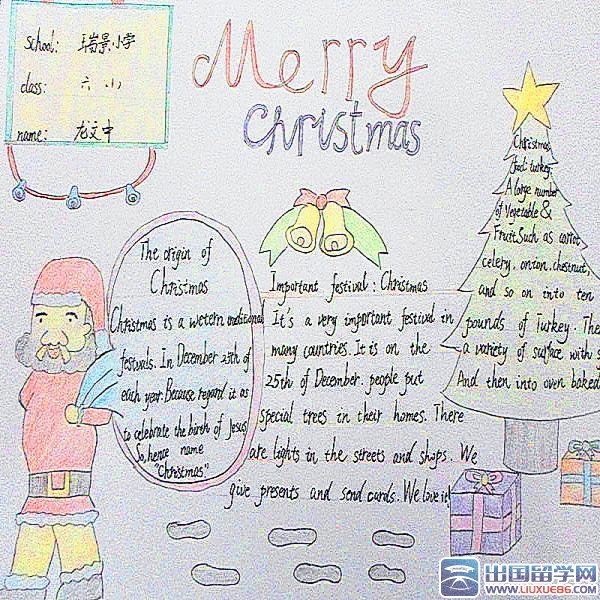 School: 瑞景小学
class: 六 小
name: 龙文中
Merry
Christmas
The origin of
Christmas
Christmas is a wetern traditional
festivals. In December 25th of
each year. Because regard it as
to celebrate the birth of Jesus
So, hence name
"Christmas"
Important festival : Christmas
It's a very important festival in
many countries. It is on the
25th of December. people put
special trees in their homes. There
are lights in the streets and shops. We
give presents and send cards. We love it!
Christmas
food: turkey.
A large number
of vegetable &
Fruit. Such as carrot
celery, onion, chestnut,
and so on into ten
pounds of Turkey. The
a variety of surface with s
And then into oven baked
出国留学网
WWW.LIUXUE86.COM